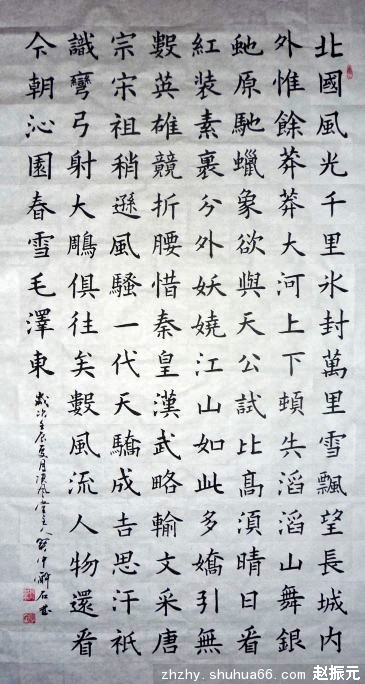 北國風光千里氷封萬里雪飄望長城内
外惟餘莽莽大河上下頓失滔滔山舞銀
虵原馳蠟象欲與天公試比高須晴日看
紅装素裹分外妖嬈江山如此多嬌引無
數英雄競折腰惜秦皇漢武略輸文采唐
宗宋祖稍遜風騷一代天驕成吉思汗衹
識彎弓射大鵰俱往矣數風流人物還看
今朝沁園春雪毛澤東
歲次壬辰夏月
zhzhy.shuhua66.com 赵振元